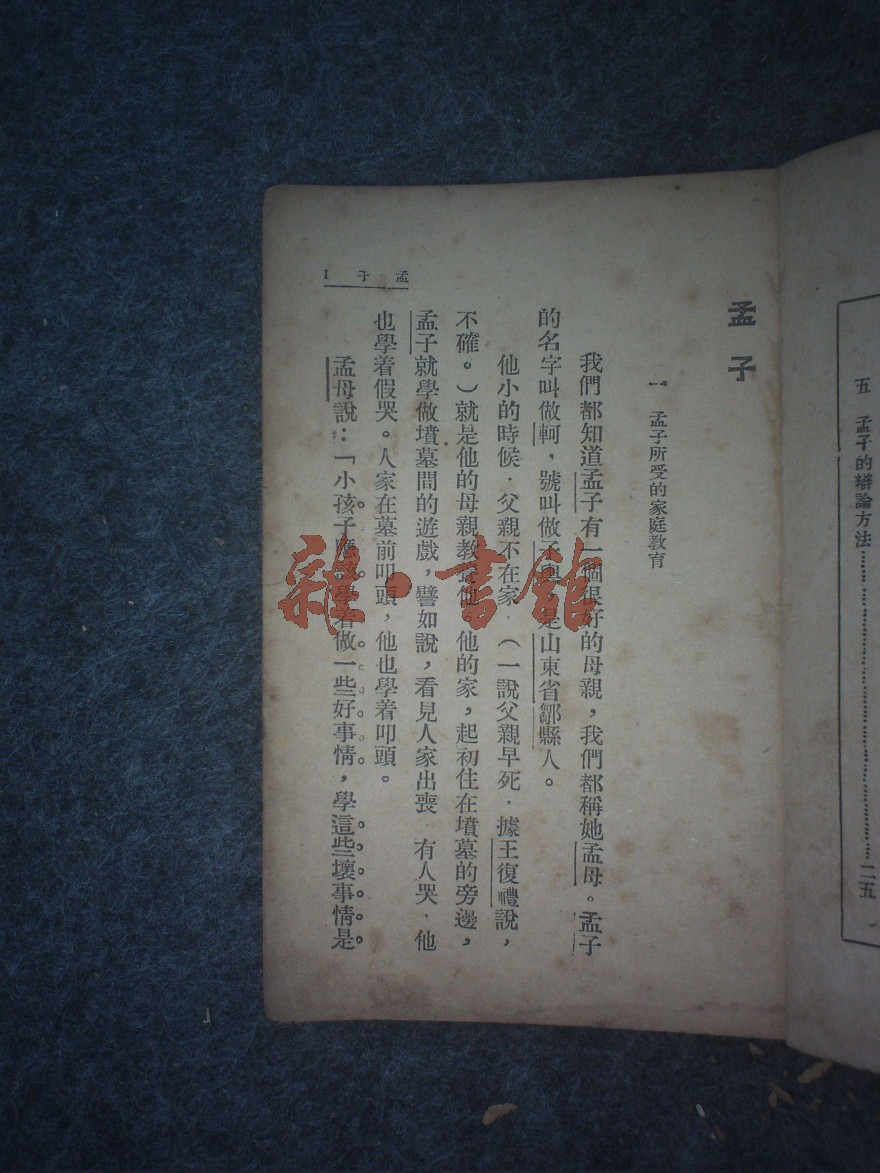 五 孟子的辯論方法……………………二五
孟子
一 孟子所受的家庭教育
我們都知道孟子有一個很好的母親，我們都稱她孟母。孟子
的名字叫做軻，號叫做子輿，是山東省鄒縣人。
他小的時候．父親不在家．（一說父親早死．據王復禮說，
不確。）就是他的母親教養他。他的家，起初住在墳墓的旁邊，
孟子就學做墳墓間的遊戲，譬如說，看見人家出喪．有人哭、他
也學着假哭。人家在墓前叩頭，他也學着叩頭。
孟母說：「小孩子應該學着做一些好事情，學這些壞事情是
孟子 1
雜·書館